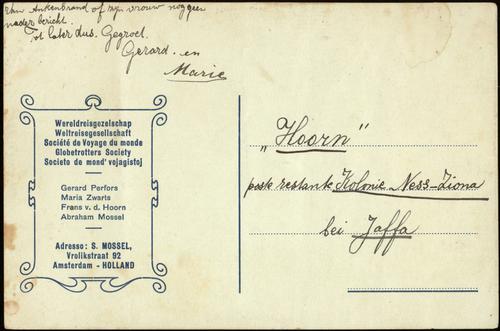 Ankenbrand of zijn vrouw nog geen
nader bericht.
Tot later dus. Gegroet.
Gerard en
Marie
Wereldreisgezelschap
Weltreisegesellschaft
Société de Voyage du monde
Globetrotters Society
Societo de mond' vojagistoj
Gerard Perfors
Maria Zwarts
Frans v. d. Hoorn
Abraham Mossel
Adresso: S. MOSSEL,
Vrolikstraat 92
Amsterdam - HOLLAND
„Hoorn"
poste restante Kolonie Ness-Ziona
bei Jaffa